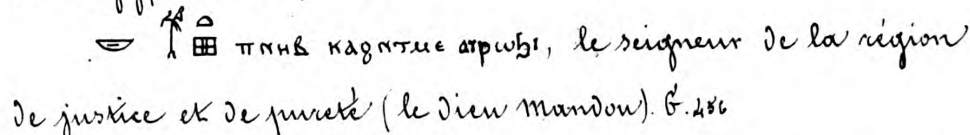 ⲡⲛⲏⲃ ⲕⲁϩⲛⲧⲙⲉ, le seigneur de la région
de justice et de pureté (le Dieu Mandou). G. 456